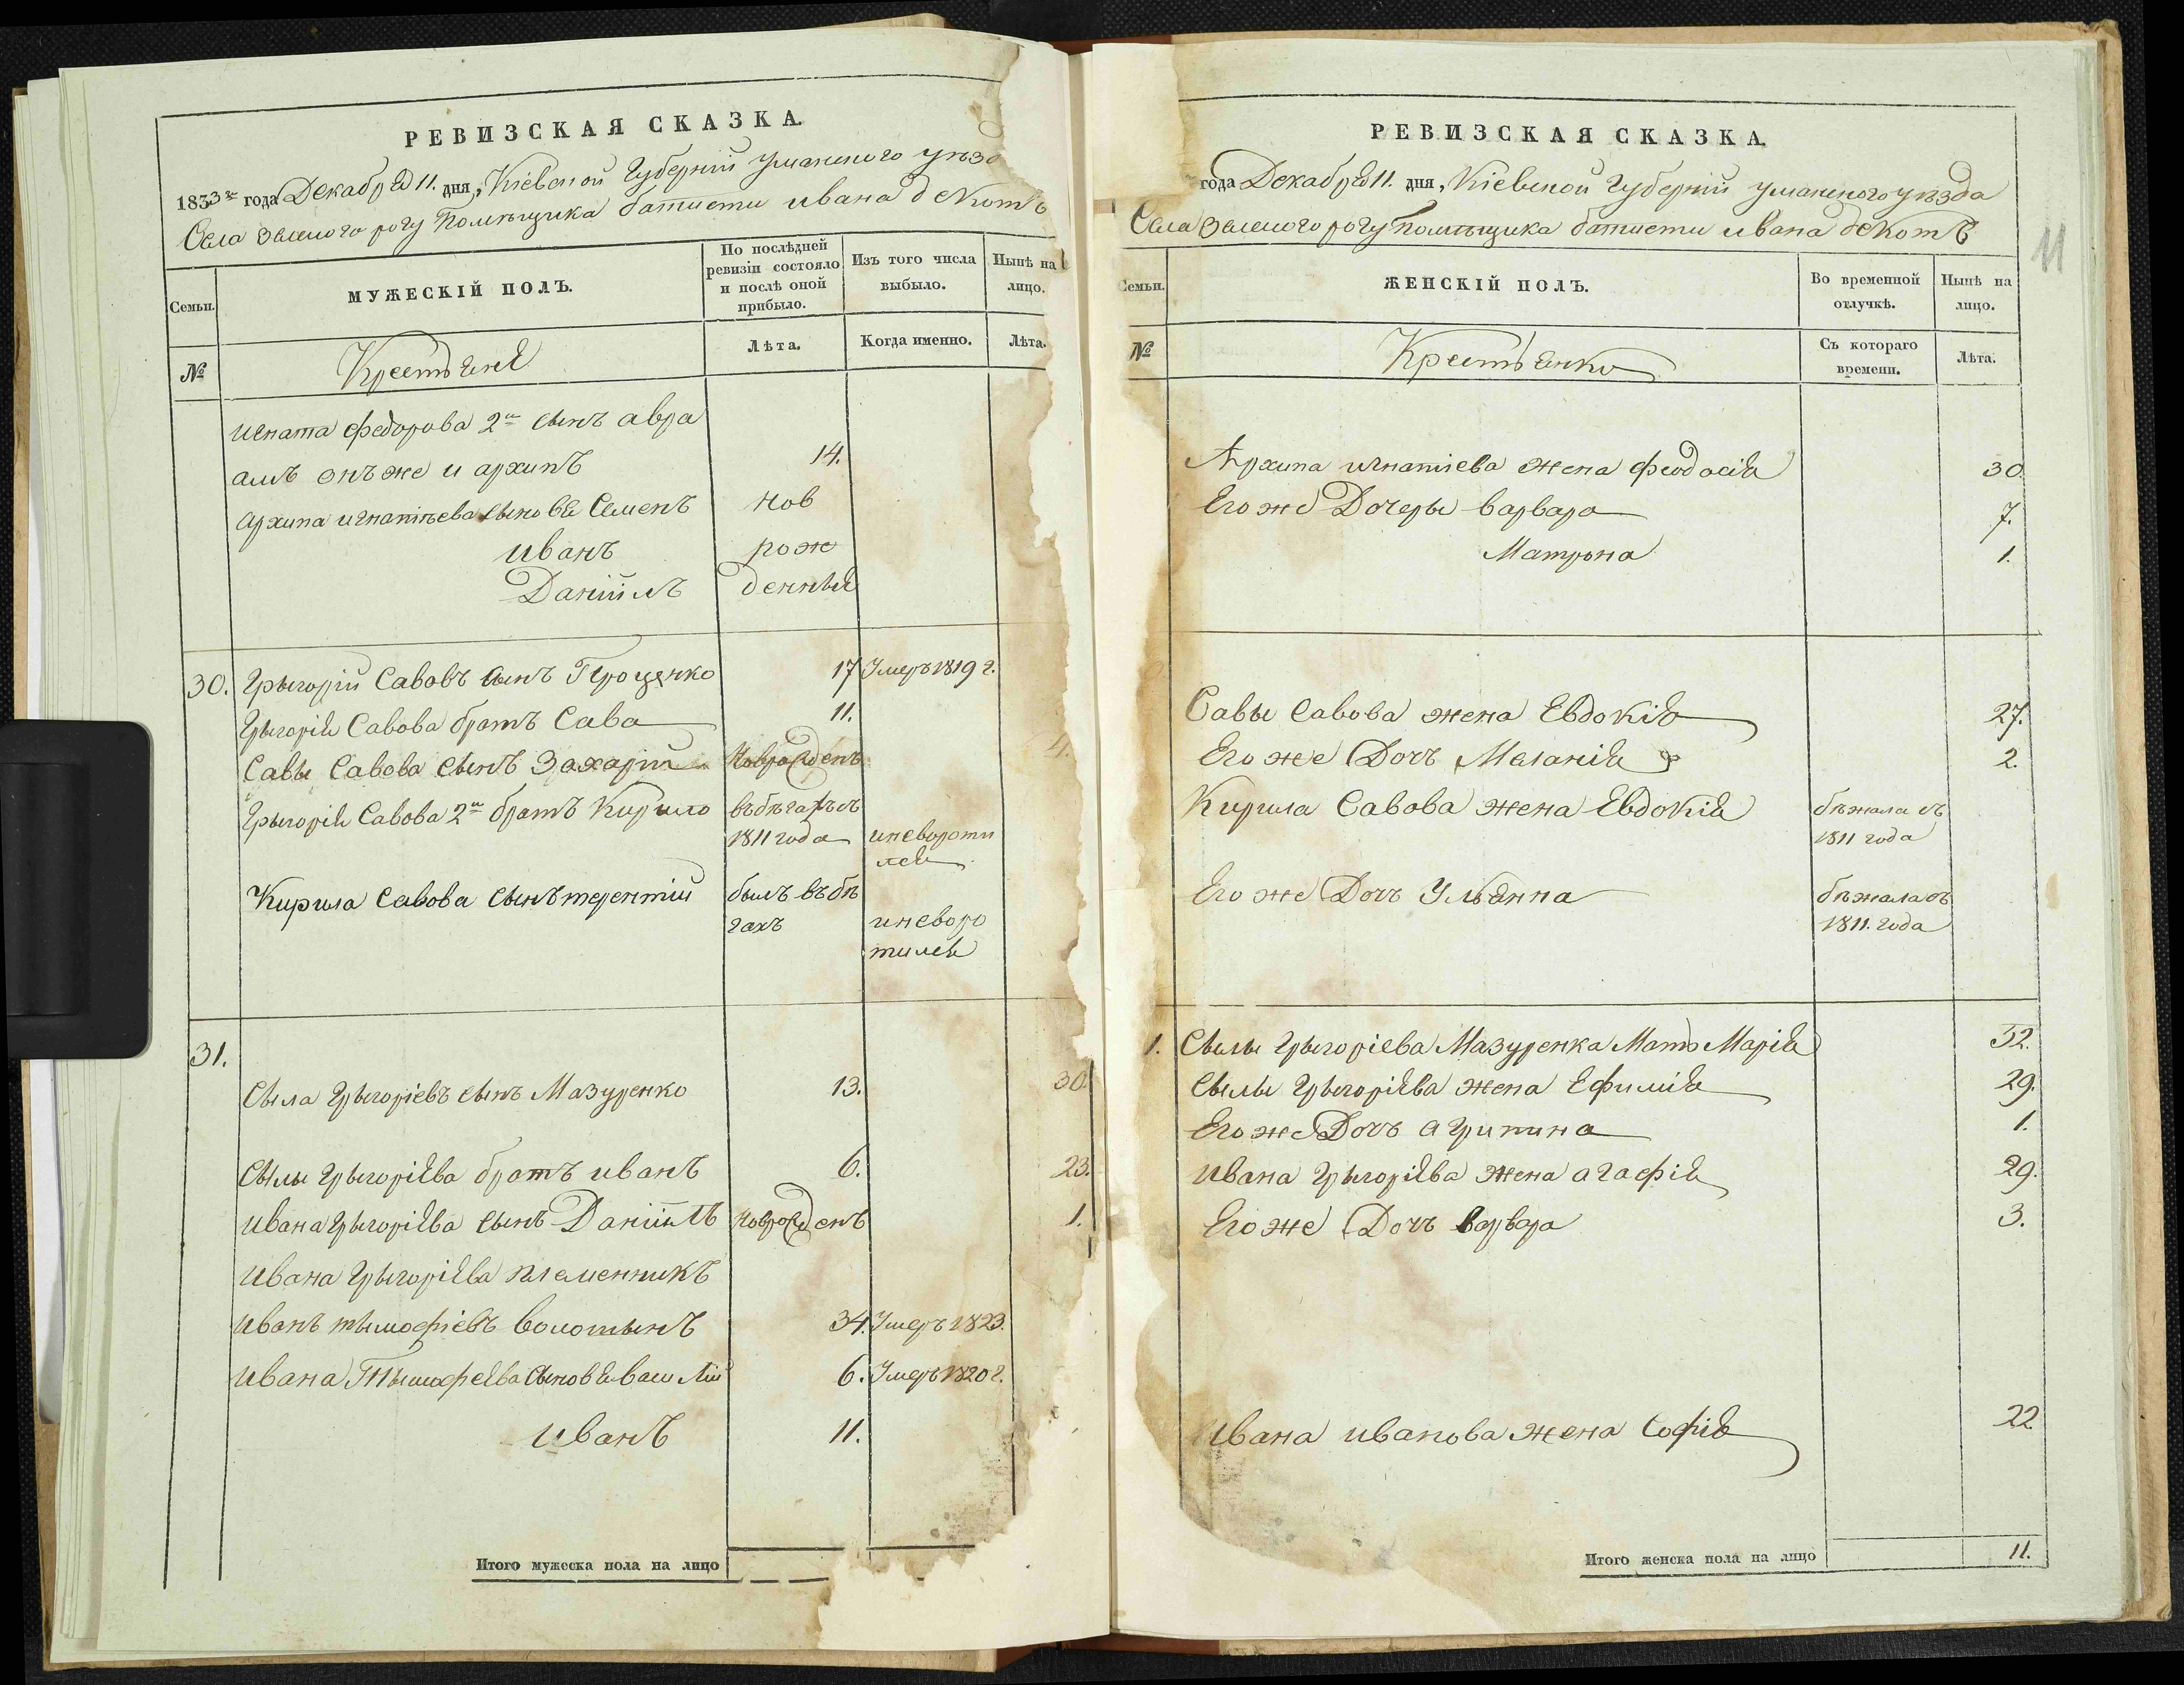 РЕВИЗСКАЯ СКАЗКА.
1833го года Декабря 11. дня, Кіевской Губерніи Уманского уѣзд
Села Зеленого рогу Помѣщика батисти ивана де
Семьи.
МУЖЕСКІЙ ПОЛЪ.
По послѣдней ревизіи состояло и послѣ оной прибыло.
Изъ того числа выбыло.
Нынѣ на лицо.
№
Крестьяне
Лѣта.
Когда именно.
Лѣта.
игната федорова 2й сынъ авра
амъ онъ же и архипъ 14.
архипа игнатьева сыновья Семенъ нов
иванъ рож
Даніилъ денные
30. Грыгорій Савовъ сынъ Проценко 17 Умеръ 1819 г.
Грыгорія Савова братъ Сава 11.
Савы Савова сынъ Захарій Новорожденъ 4.
Грыгорія Савова 2й братъ Кирило въ бѣгахъ съ
1811 года и невороти
лся
Кирила Савова сынъ терентій былъ въ бѣ
гахъ и неворо
тился
31.
Сыла Грыгоріевъ сынъ Мазуренко 13. 30
Сылы Грыгоріева братъ иванъ 6. 23.
ивана Грыгоріева сынъ Даніилъ Новорожденъ 1.
ивана Грыгоріева племенникъ
иванъ тымофіевъ волошынъ 34. Умеръ 1823.
ивана Тымофеева сыновья василій 6. Умеръ 1820 г.
иванъ 11.
Итого мужеска пола на лицо
РЕВИЗСКАЯ СКАЗКА.
года Декабря 11. дня, Кіевской Губерніи уманского уѣзда
Села Зеленого рогу помѣщика батисти ивана де
11
Семьи.
ЖЕНСКІЙ ПОЛЪ.
Во временной отлучкѣ.
Нынѣ на лицо.
№
Крестьянки
Съ котораго времени.
Лѣта.
Архипа игнатіева жена феодосія 30.
Его же Дочеры варвара 7.
Матрона 1.
Савы Савова жена Евдокія 27.
Его же Дочъ Меланія 2.
Кирила Савова жена Евдокія бѣжала съ
1811 года
Его же Дочъ Ульянна бѣжала съ
1811. года
1. Сылы Грыгоріева Мазуренка Мать Марія 52.
Сылы Грыгоріева жена Ефимія 29.
Его же Дочъ агрипина 1.
ивана Грыгоріева жена агафія 29.
Его же Дочъ варвара 3.
Ивана иванова жена Софія 22
Итого женска пола на лицо 11.